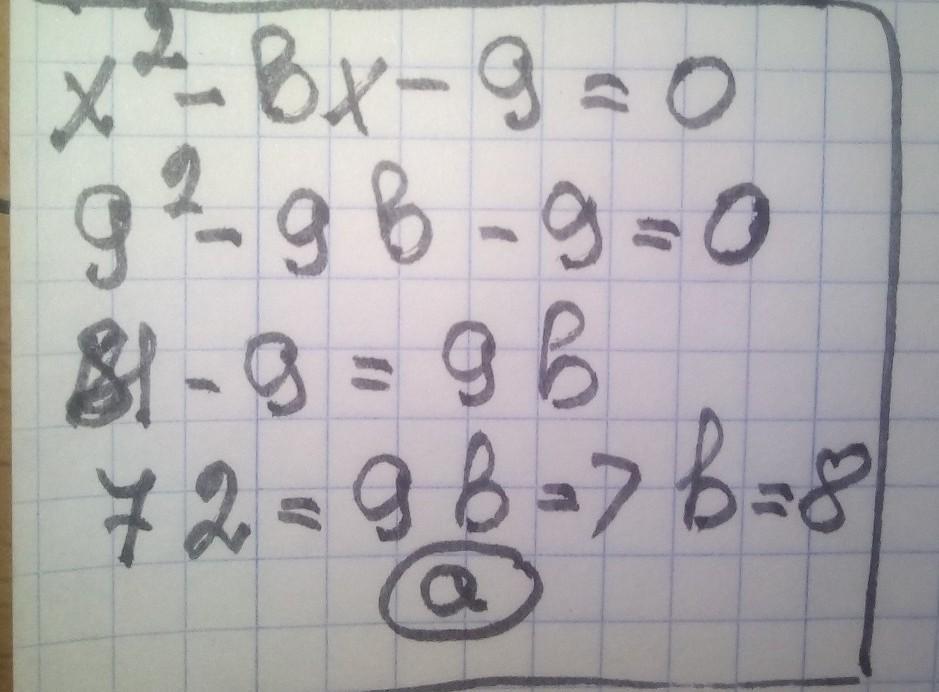 x² - bx - 9 = 0
9² - 9b - 9 = 0
81 - 9 = 9b
72 = 9b => b = 8
a